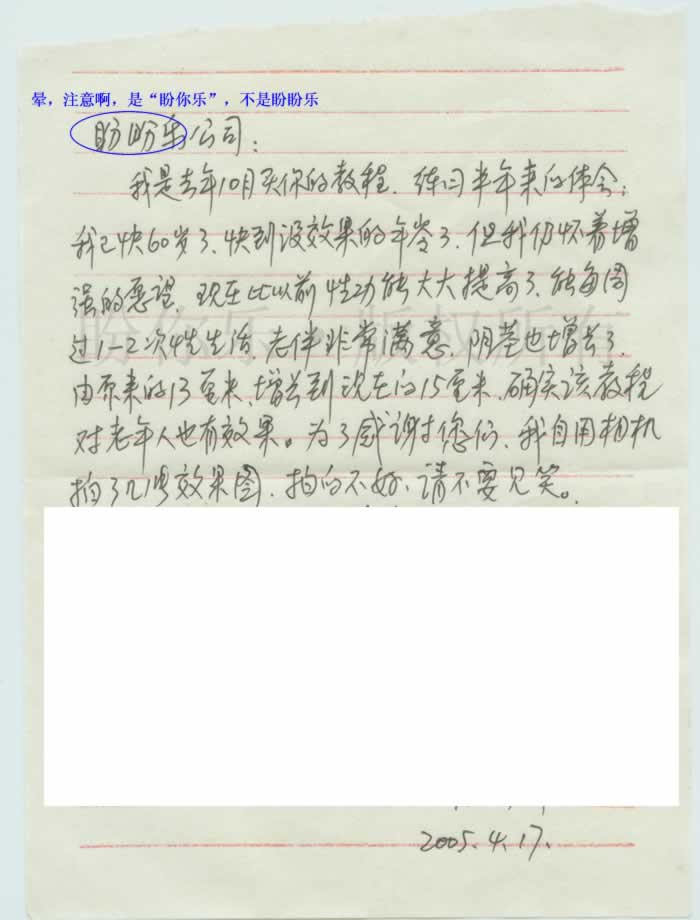 晕，注意啊，是“盼你乐”，不是盼盼乐
盼盼乐公司：
我是去年10月买你的教程、练习半年来的体会：
我已快60岁了、快到没效果的年岑了、但我仍怀着增
强的愿望、现在比以前性功能大大提高了、能每周
盼你乐 版权所有
过1-2次性生活、老伴非常满意、阴茎也增长了、
由原来的13厘米、增长到现在的15厘米、确实该教程
对老年人也有效果。为了感谢您们、我自用相机
拍了几张效果图、拍的不好、请不要见笑。
2005.4.17.